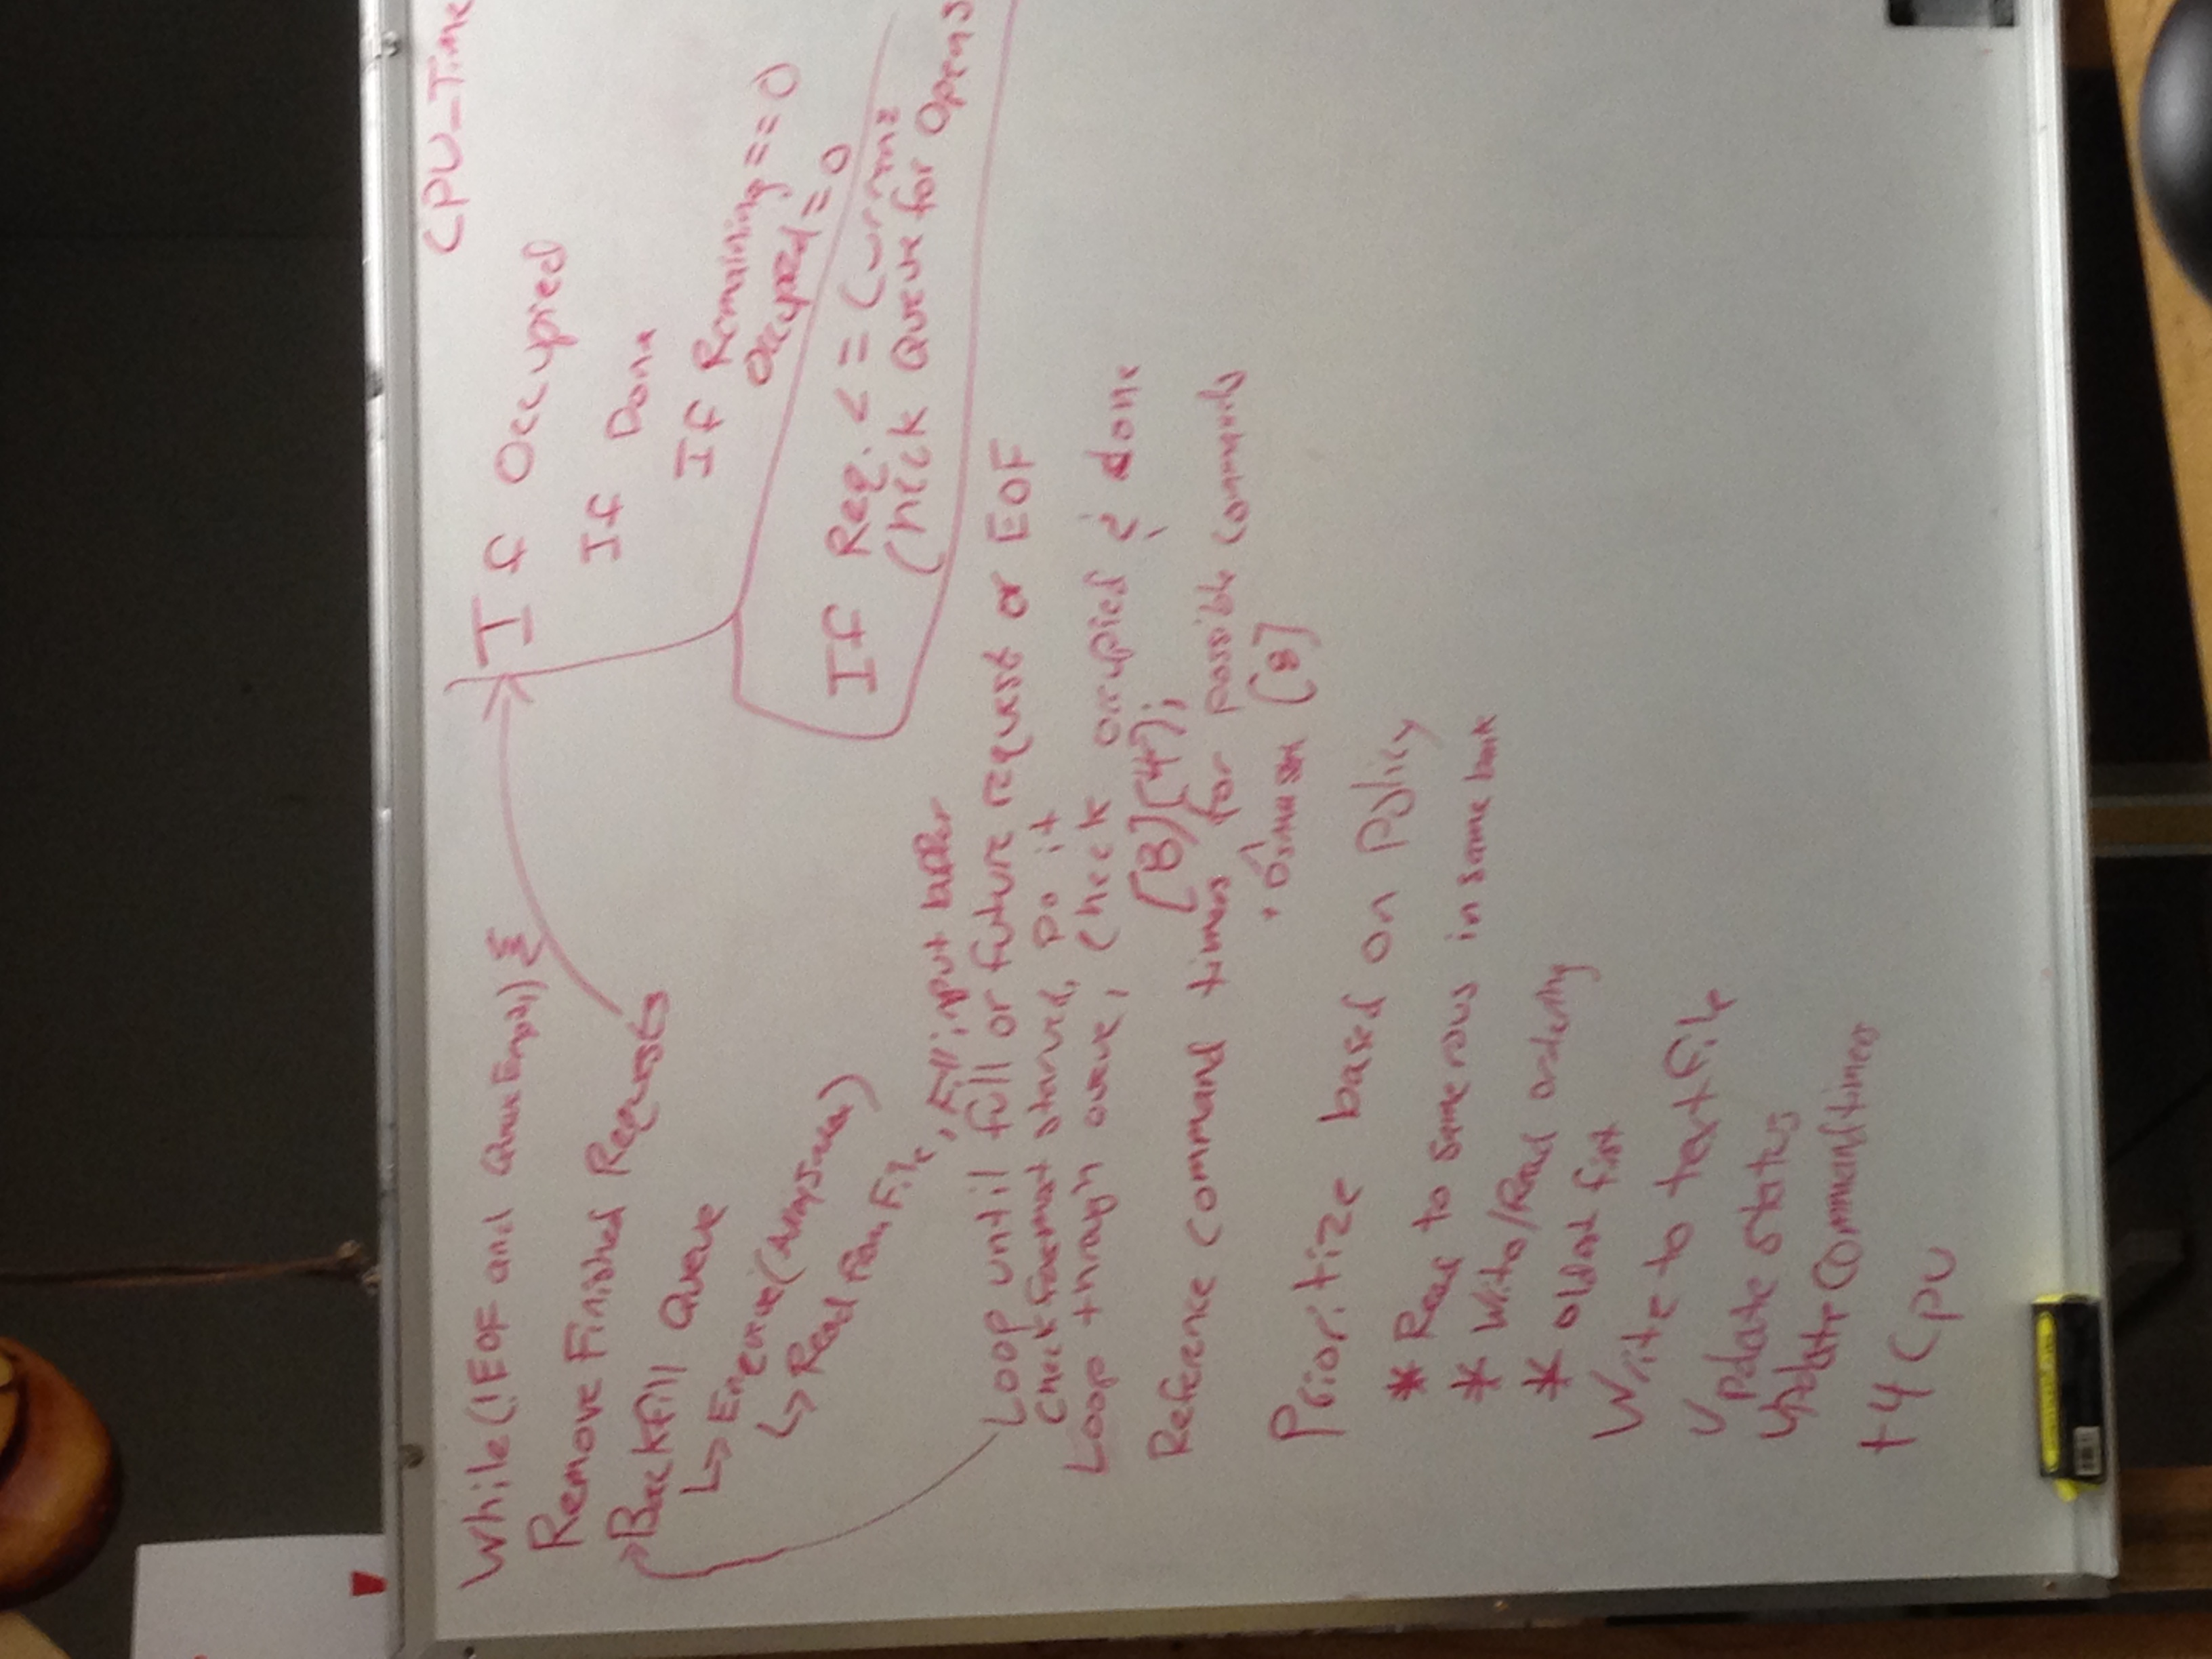 While (!EOF and Queue Empty) {
Remove Finished Requests
Backfill Queue
↳ Enqueue (Array Struct)
↳ Read from File, Fill input buffer
Loop until full or future request or EOF
Check for most starved, Do it
Loop through queue, Check occupied & done
[8][4];
Reference Command timers for possible commands
+ [8]
Prioritize based on Policy
* Read to same rows in same bank
* Write/Read ordering
* oldest first
Write to text file
Update status
Update Command timers
+4 CPU
CPU_Time
If Occupied
If Done
If Remaining == 0
Occupied = 0
If Req. <= Current
Check Queue for Opens